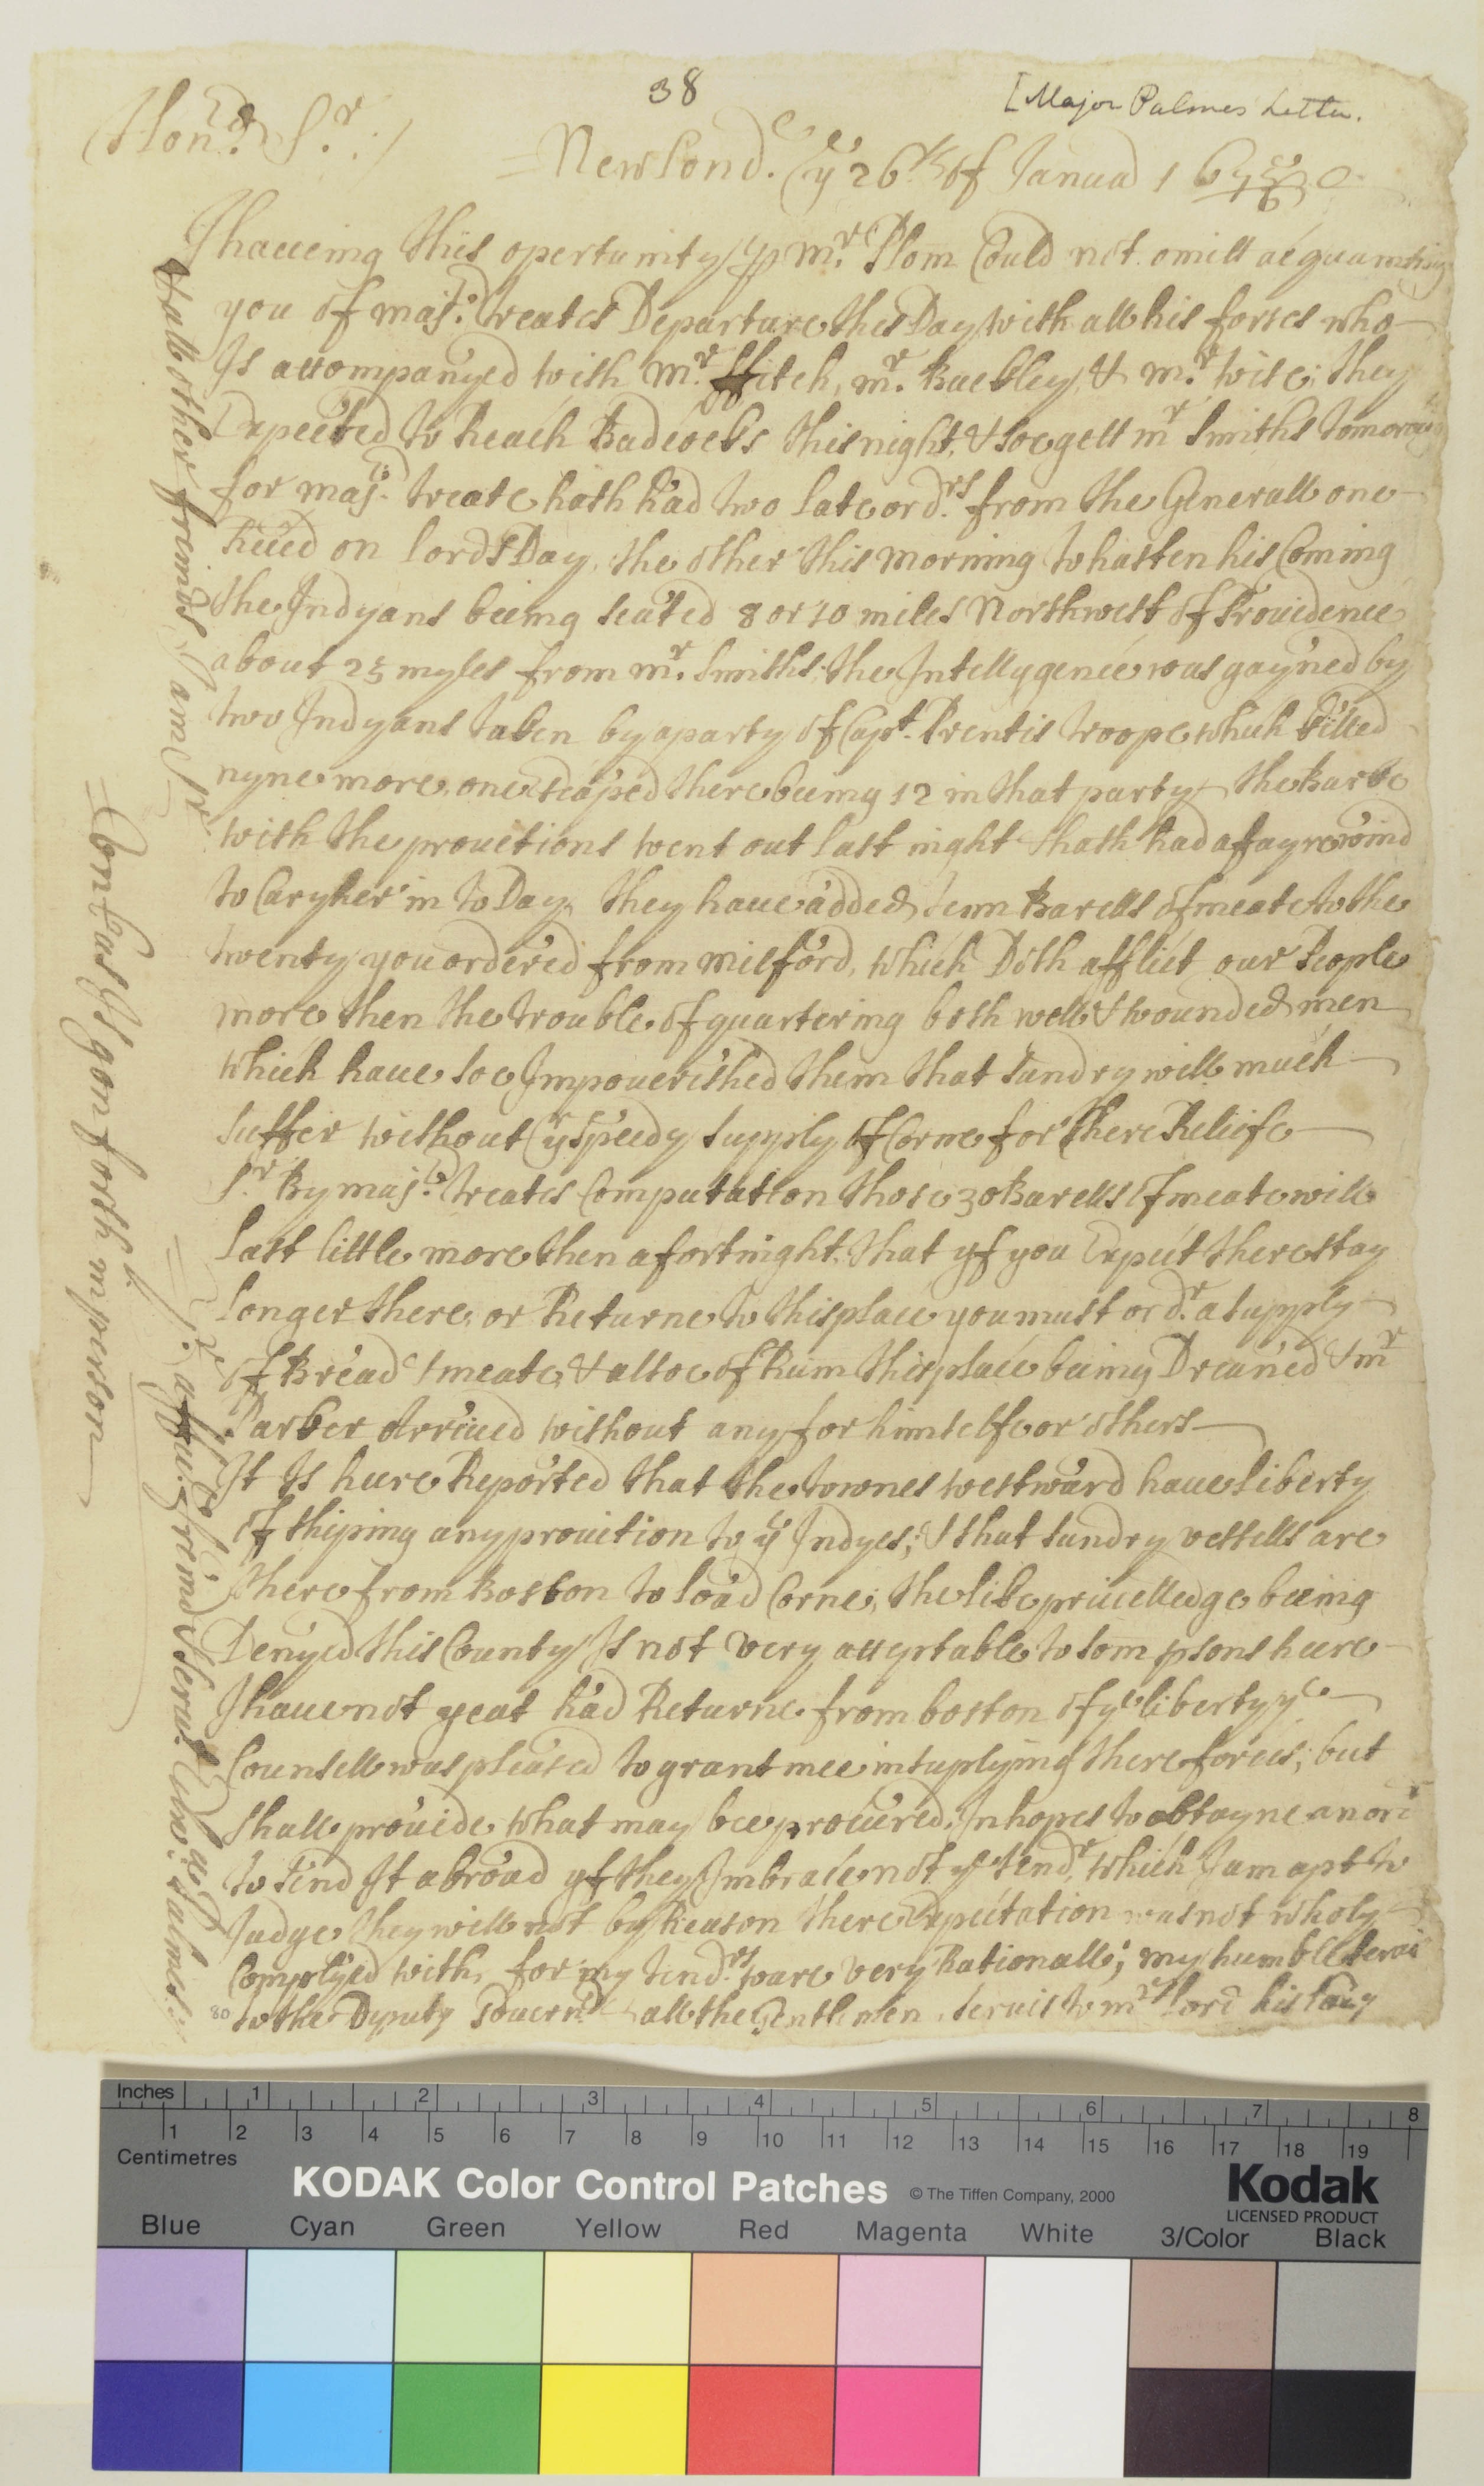 38
[Major Palmes Letter.
Honrd Sr:/
New Lond. ye 26th of Januar 1675/6
I haueing this opertunity p mr. Plom Could not omitt acquainting
you of majr. treates Departure this Day with all his forces who
Is accompanyed with Mr. ffitch, mr. Buckley, & mr. wise; they
Expected to Reach Badcocks this night, & soe gett mr Smiths tomorow
for majr. treate hath had two late ordrs. from the Generall one
Rceued on Lords Day, the other this morning to hasten his Coming
the Indyans being seated 8 or 10 miles Northwest of Prouidence
about 25 myles from mr. Smiths; the Intellygence was gayned by
two Indyans taken by a party of Capt. Prentis troope which killed
nyne more, one Escaped there being 12 in that party, the Barke
with the prouitions went out last night & hath had a fayre wind
to Cary her in to Day, they haue added tenn Barells of meate to the
twenty you ordered from milford, which Doth afflict our People
more then the trouble of quartering both well & wounded men
which haue soe Impouerished them that sundry will much
suffer without ye speedy supply of Corne for there Reliefe
Sr. By majr. treates Computation those 30 Barells of meate will
last little more then a fortnight, that yf you Expect there stay
longer there, or Returne to this place you must ordr. a supply
of Bread & meate, & alsoe of Rum this place being Dreaned & mr
Parker Arriued without any for himselfe or others
It Is heere Reported that the townes westward haue liberty
of shiping any prouition to ye Indyes; & that sundry vessells are
there from Boston to load Corne; the like priuelledge being
Denyed this County Is not very acceptable to som psons heere
I haue not yeat had Returne from boston of ye liberty ye
Counsell was pleased to grant mee in suplying there forces; but
shall prouide what may bee procured, In hopes to obtayne an ordr
to send It abroad yf they Imbrace not ye tendr, which I am apt to
Judge they will not by Reason there Expectation was not wholy
Complyed with, for my tendrs. ware very Rationall; my humble seruis
to the Deputy Gouernr & all the Gentlemen, seruis to mr lord his lady
80
& all other freinds, I am Sr
Sr. affec. freind & Seruat Edw. Palmes
Conk Is gon forth in person